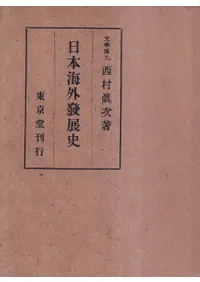 文學博士 西村眞次著
日本海外發展史
東京堂刊行